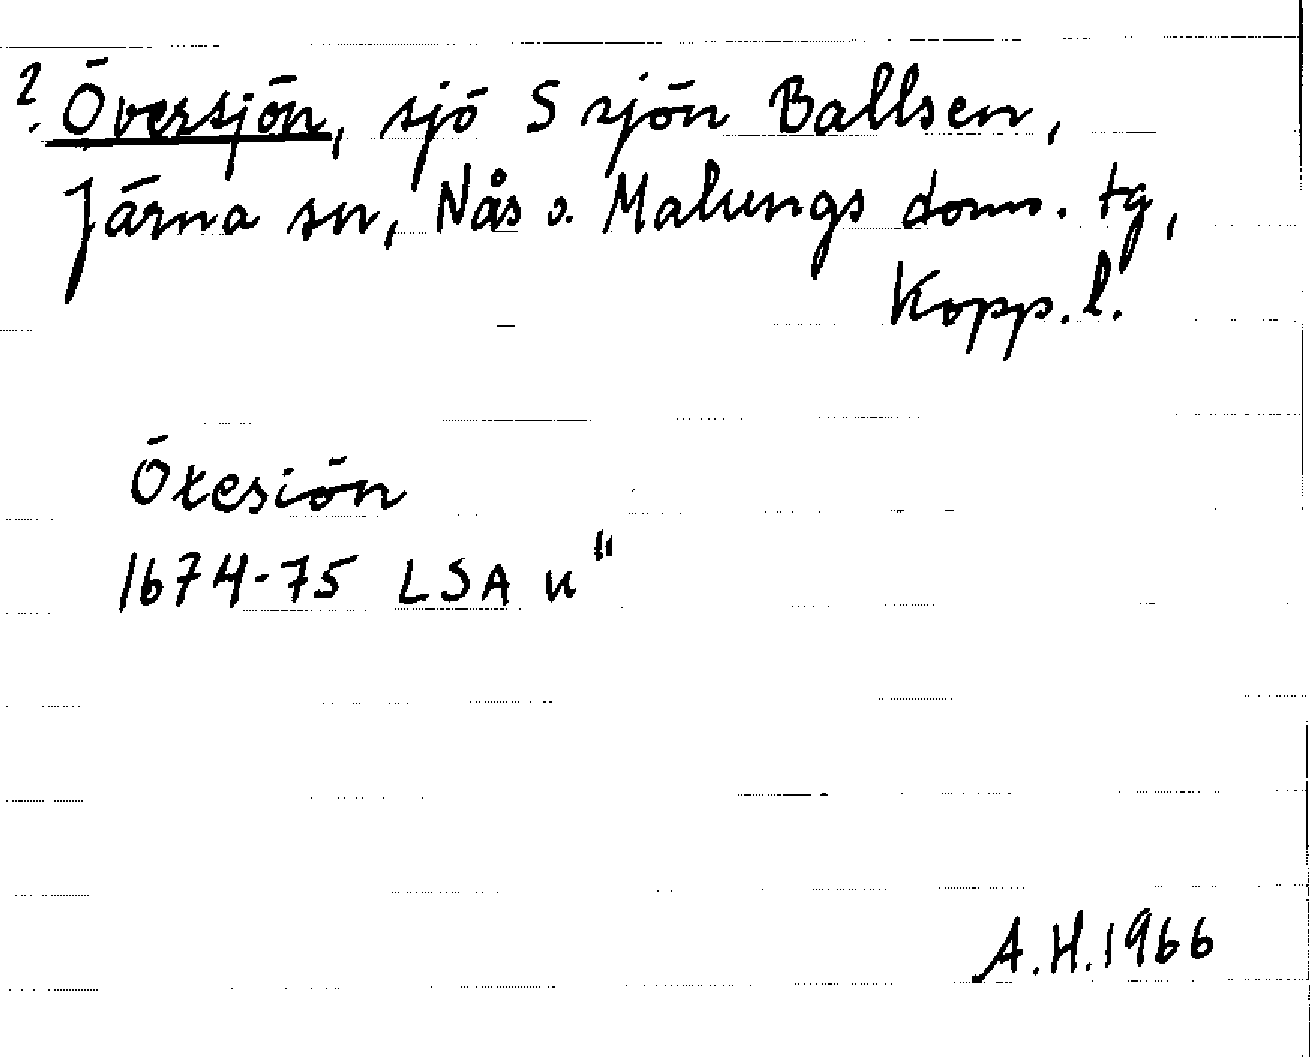 ? Översjön, sjö S sjön Ballsen,
Järna sn, Nås o. Malungs doms. tg,
Kopp. l.
Öresiön
1674-75 LSA K"
A.H. 1966